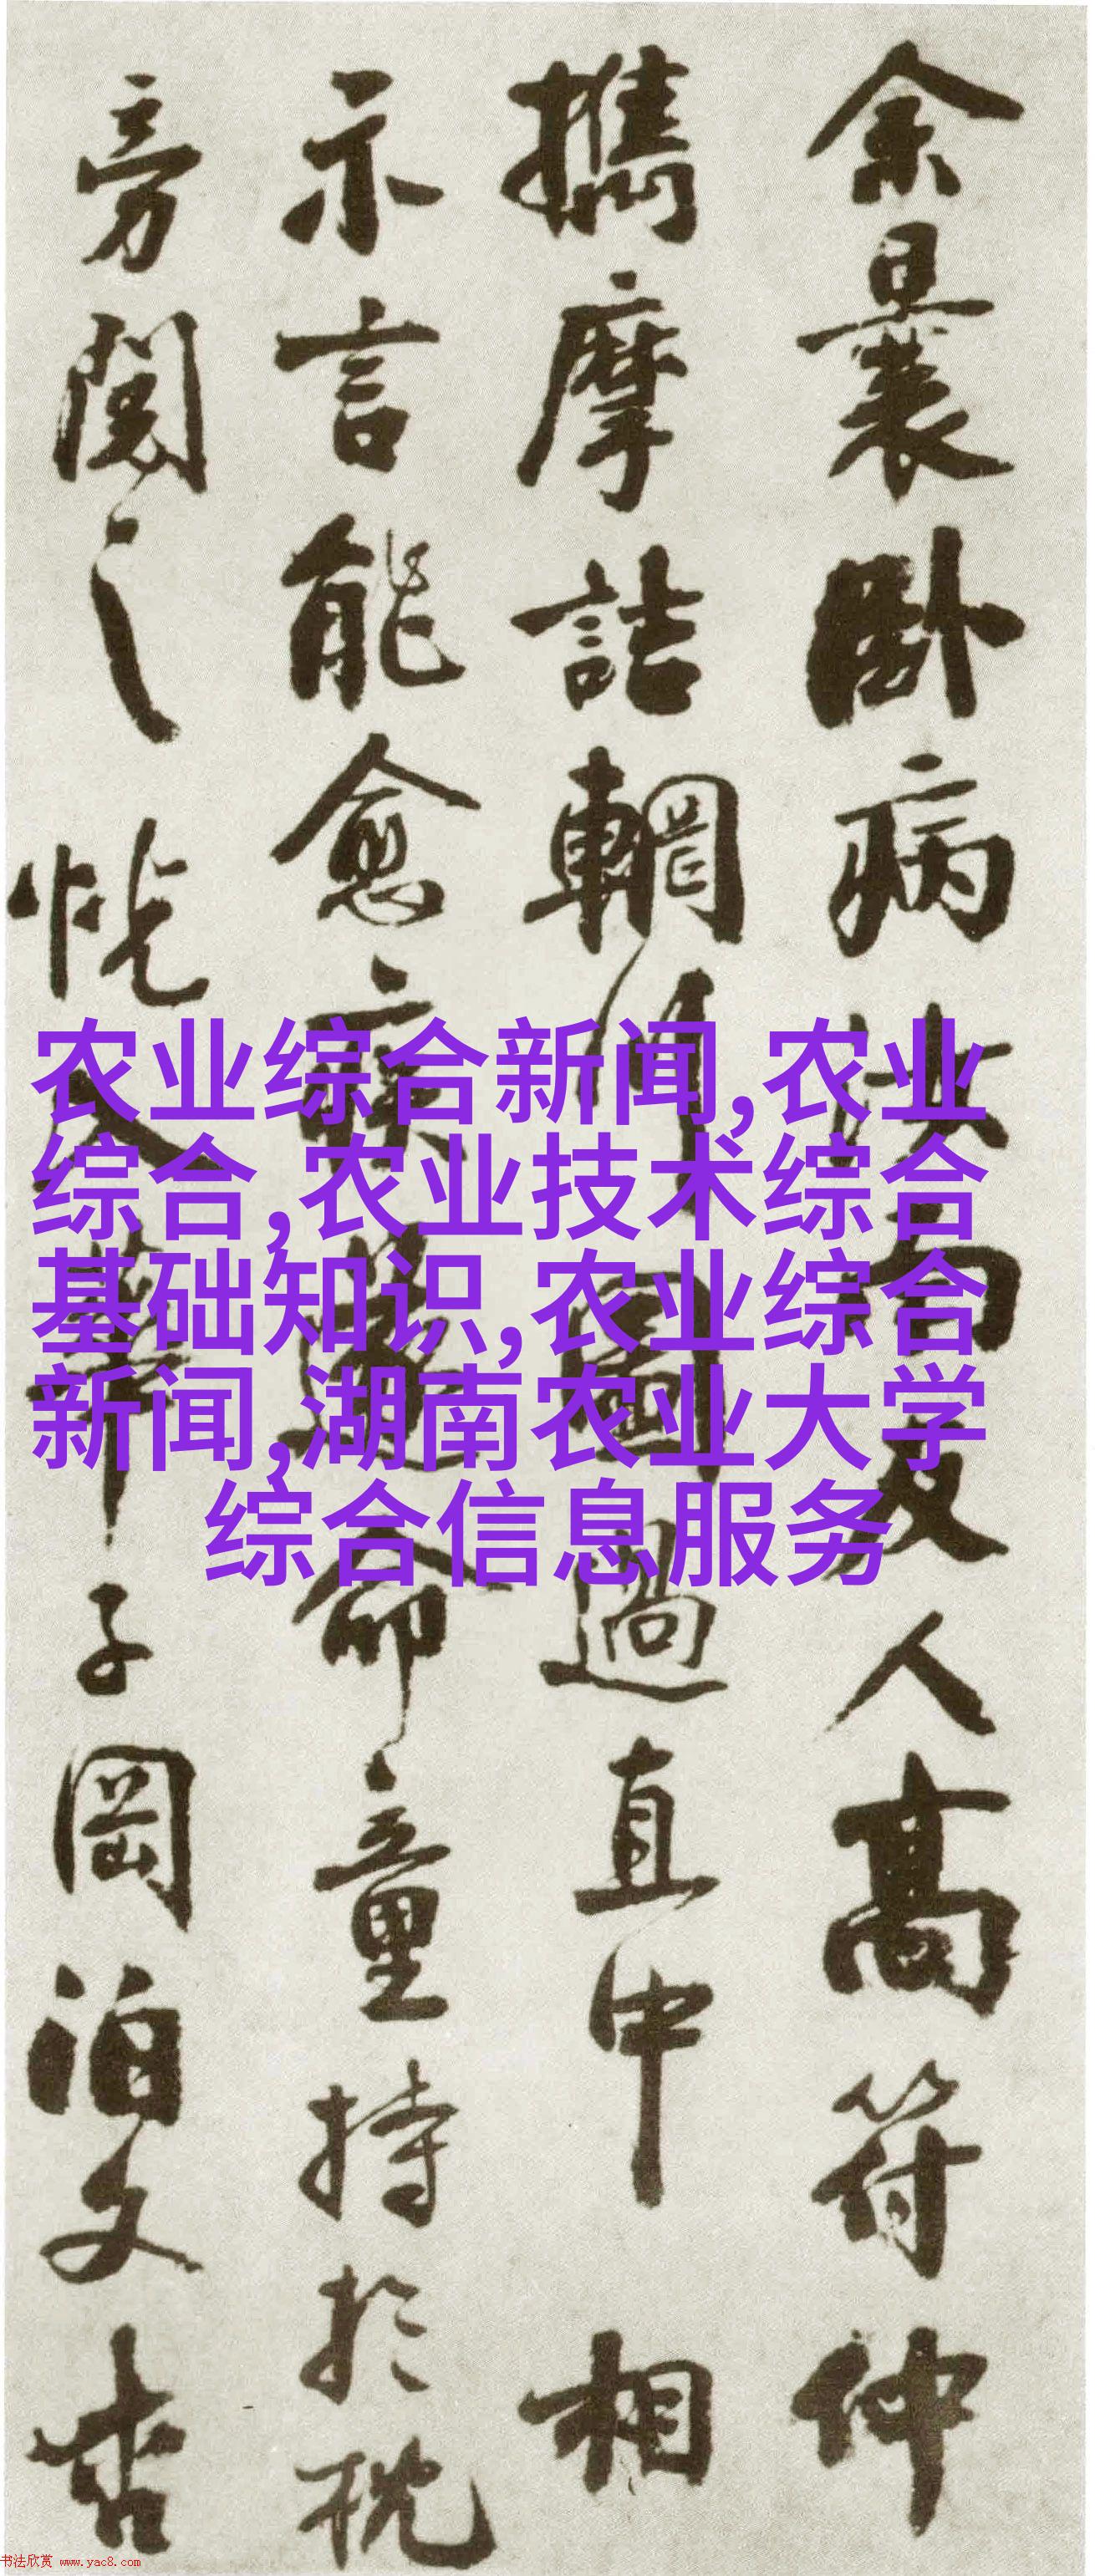 余曩卧病友人高符仲
攜摩詰輞川圖過直中相
示言能愈疾遂命童持於枕
旁閱之恍入華子岡泊文杏
农业综合新闻,农业
综合,农业技术综合
基础知识,农业综合
新闻,湖南农业大学
综合信息服务
书法欣赏 www.yac8.com